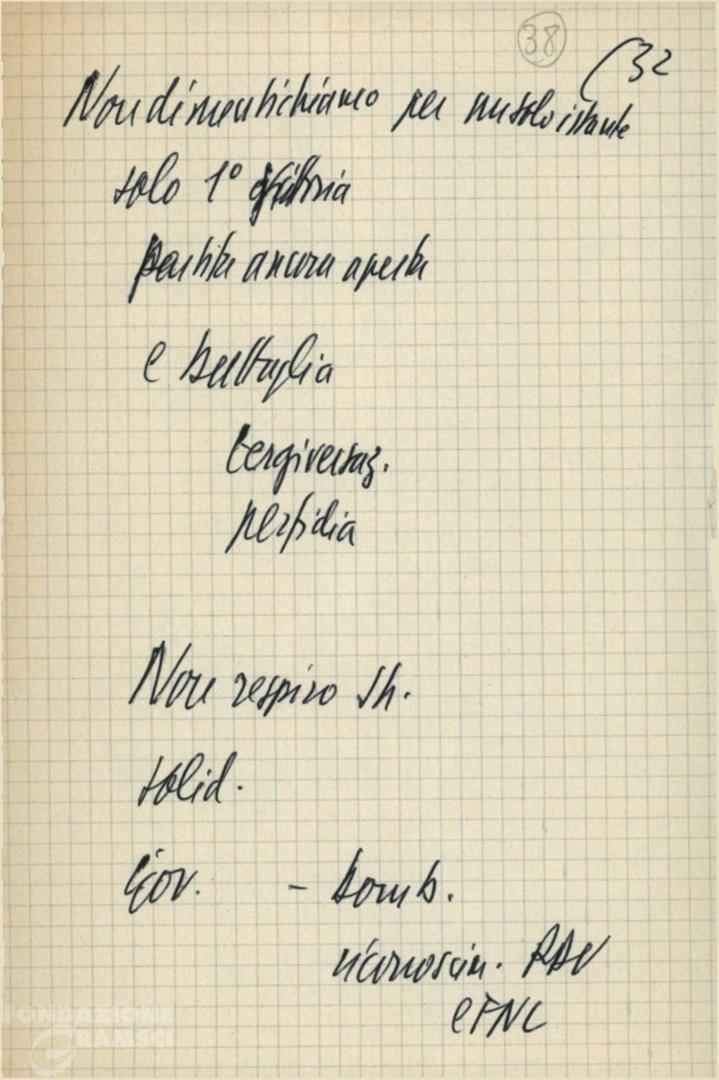 38
(32
Non dimentichiamo per un solo istante
solo 1° vittoria
partita ancora aperta
e battaglia
tergiversaz.
perfidia
Non respiro Sh.
solid.
Gov. - bomb.
riconoscim. RDV
e FNL
FONDAZIONE
GRAMSCI